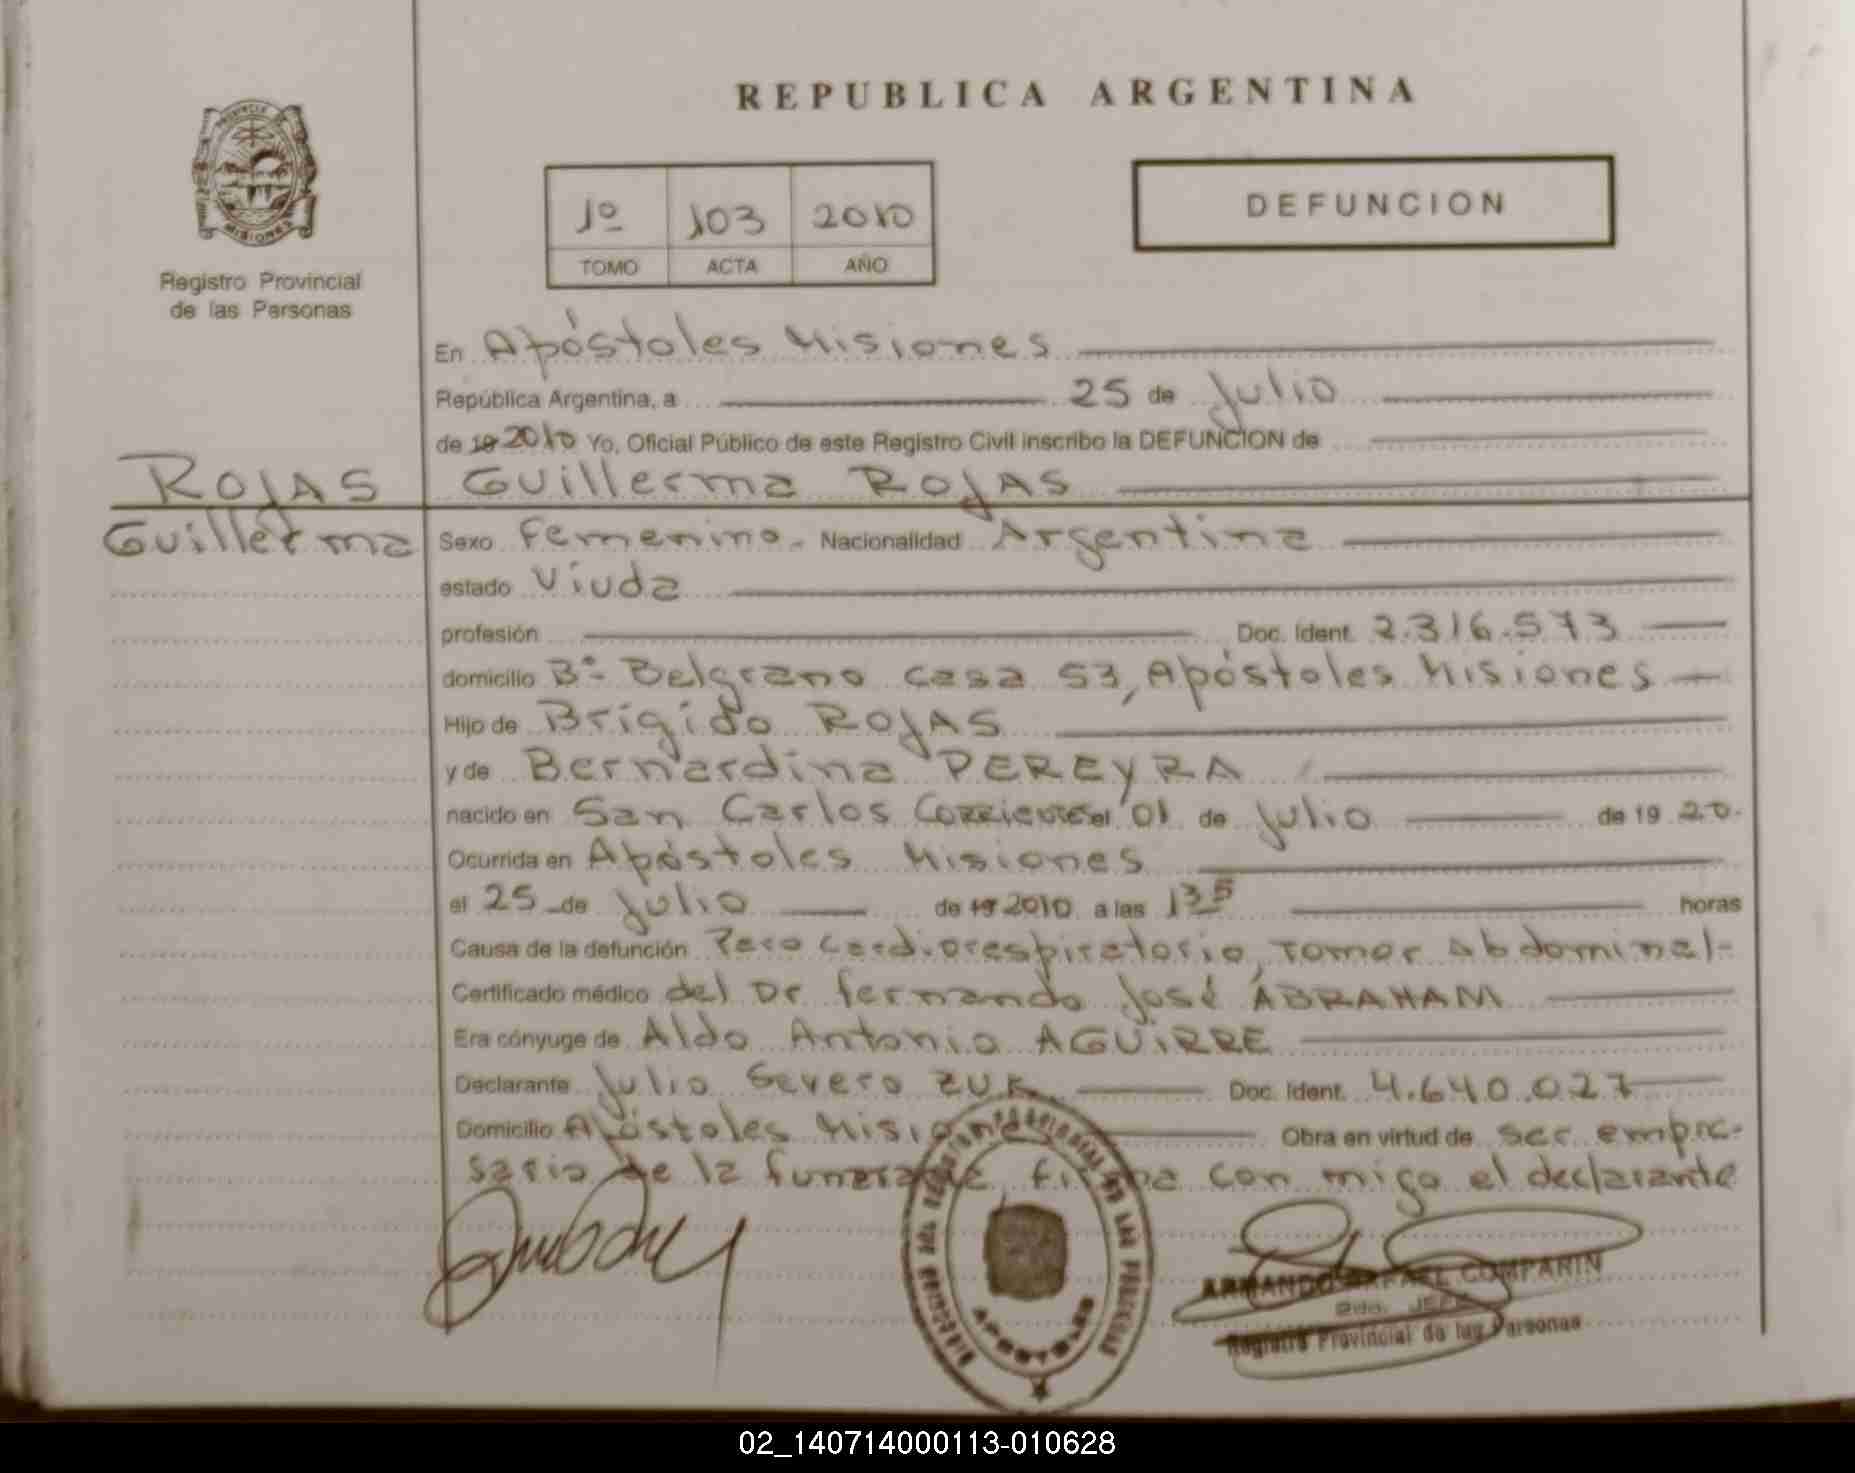 REPUBLICA ARGENTINA
PROVINCIA DE
MISIONES
Registro Provincial
de las Personas
1º 103 2010
TOMO ACTA AÑO
DEFUNCION
En Apóstoles Misiones
República Argentina, a 25 de Julio
de 19 2010 Yo, Oficial Público de este Registro Civil inscribo la DEFUNCION de
ROJAS Guillerma ROJAS
Guillerma Sexo Femenino. Nacionalidad Argentina
estado Viuda
profesión Doc. Ident. 2.316.573
domicilio Bº Belgrano casa 53, Apóstoles Misiones
Hijo de Brigido ROJAS
y de Bernardina PEREYRA
nacido en San Carlos Corrientes el 01 de Julio de 19 20.
Ocurrida en Apóstoles Misiones
el 25 de Julio de 19 2010 a las 1 35 horas
Causa de la defunción Paro cardiorespiratorio, Tomor Abdominal-
Certificado médico del Dr Fernando José ÁBRAHAM
Era cónyuge de Aldo Antonio AGUiRRE
Declarante Julio Severo ZUK Doc. Ident. 4.640.027
Domicilio Apóstoles Misiones Obra en virtud de ser empre-
sario de la funeraria, Firma con migo el declarante
ARMANDO RAFAEL COMPARIN
2do. JEFE
Registro Provincial de las Personas
APOSTOLES
02_140714000113-010628